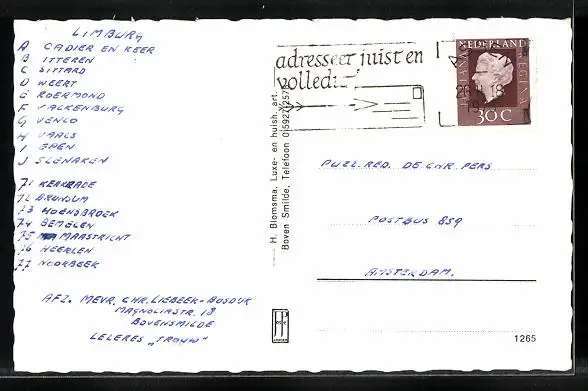 LIMBURG
A CADIER EN KEER
B ITTEREN
C SITTARD
D WEERT
E ROERMOND
F VALKENBURG
G VENLO
H VAALS
I EPEN
J SLENAKEN
71 KERKRADE
72 BRUNSUM
73 HOENSBROEK
74 BEMELEN
75 MAASTRICHT
76 HEERLEN
77 NOORBEEK
AFZ. MEVR. CHR. LIEBEEK-BOSDUK
MAGNOLIASTR. 18
BOVENSMILDE
LELERES „TROUW"
H. Blomsma, Luxe- en huish. art.
Boven Smilde, Telefoon 05927-257
adresseer juist en
volledig
NEDERLAND
JULIANA REGINA
30C
PUZZ. RED. DE CHR. PERS
POSTBUS 859
AMSTERDAM.
1265